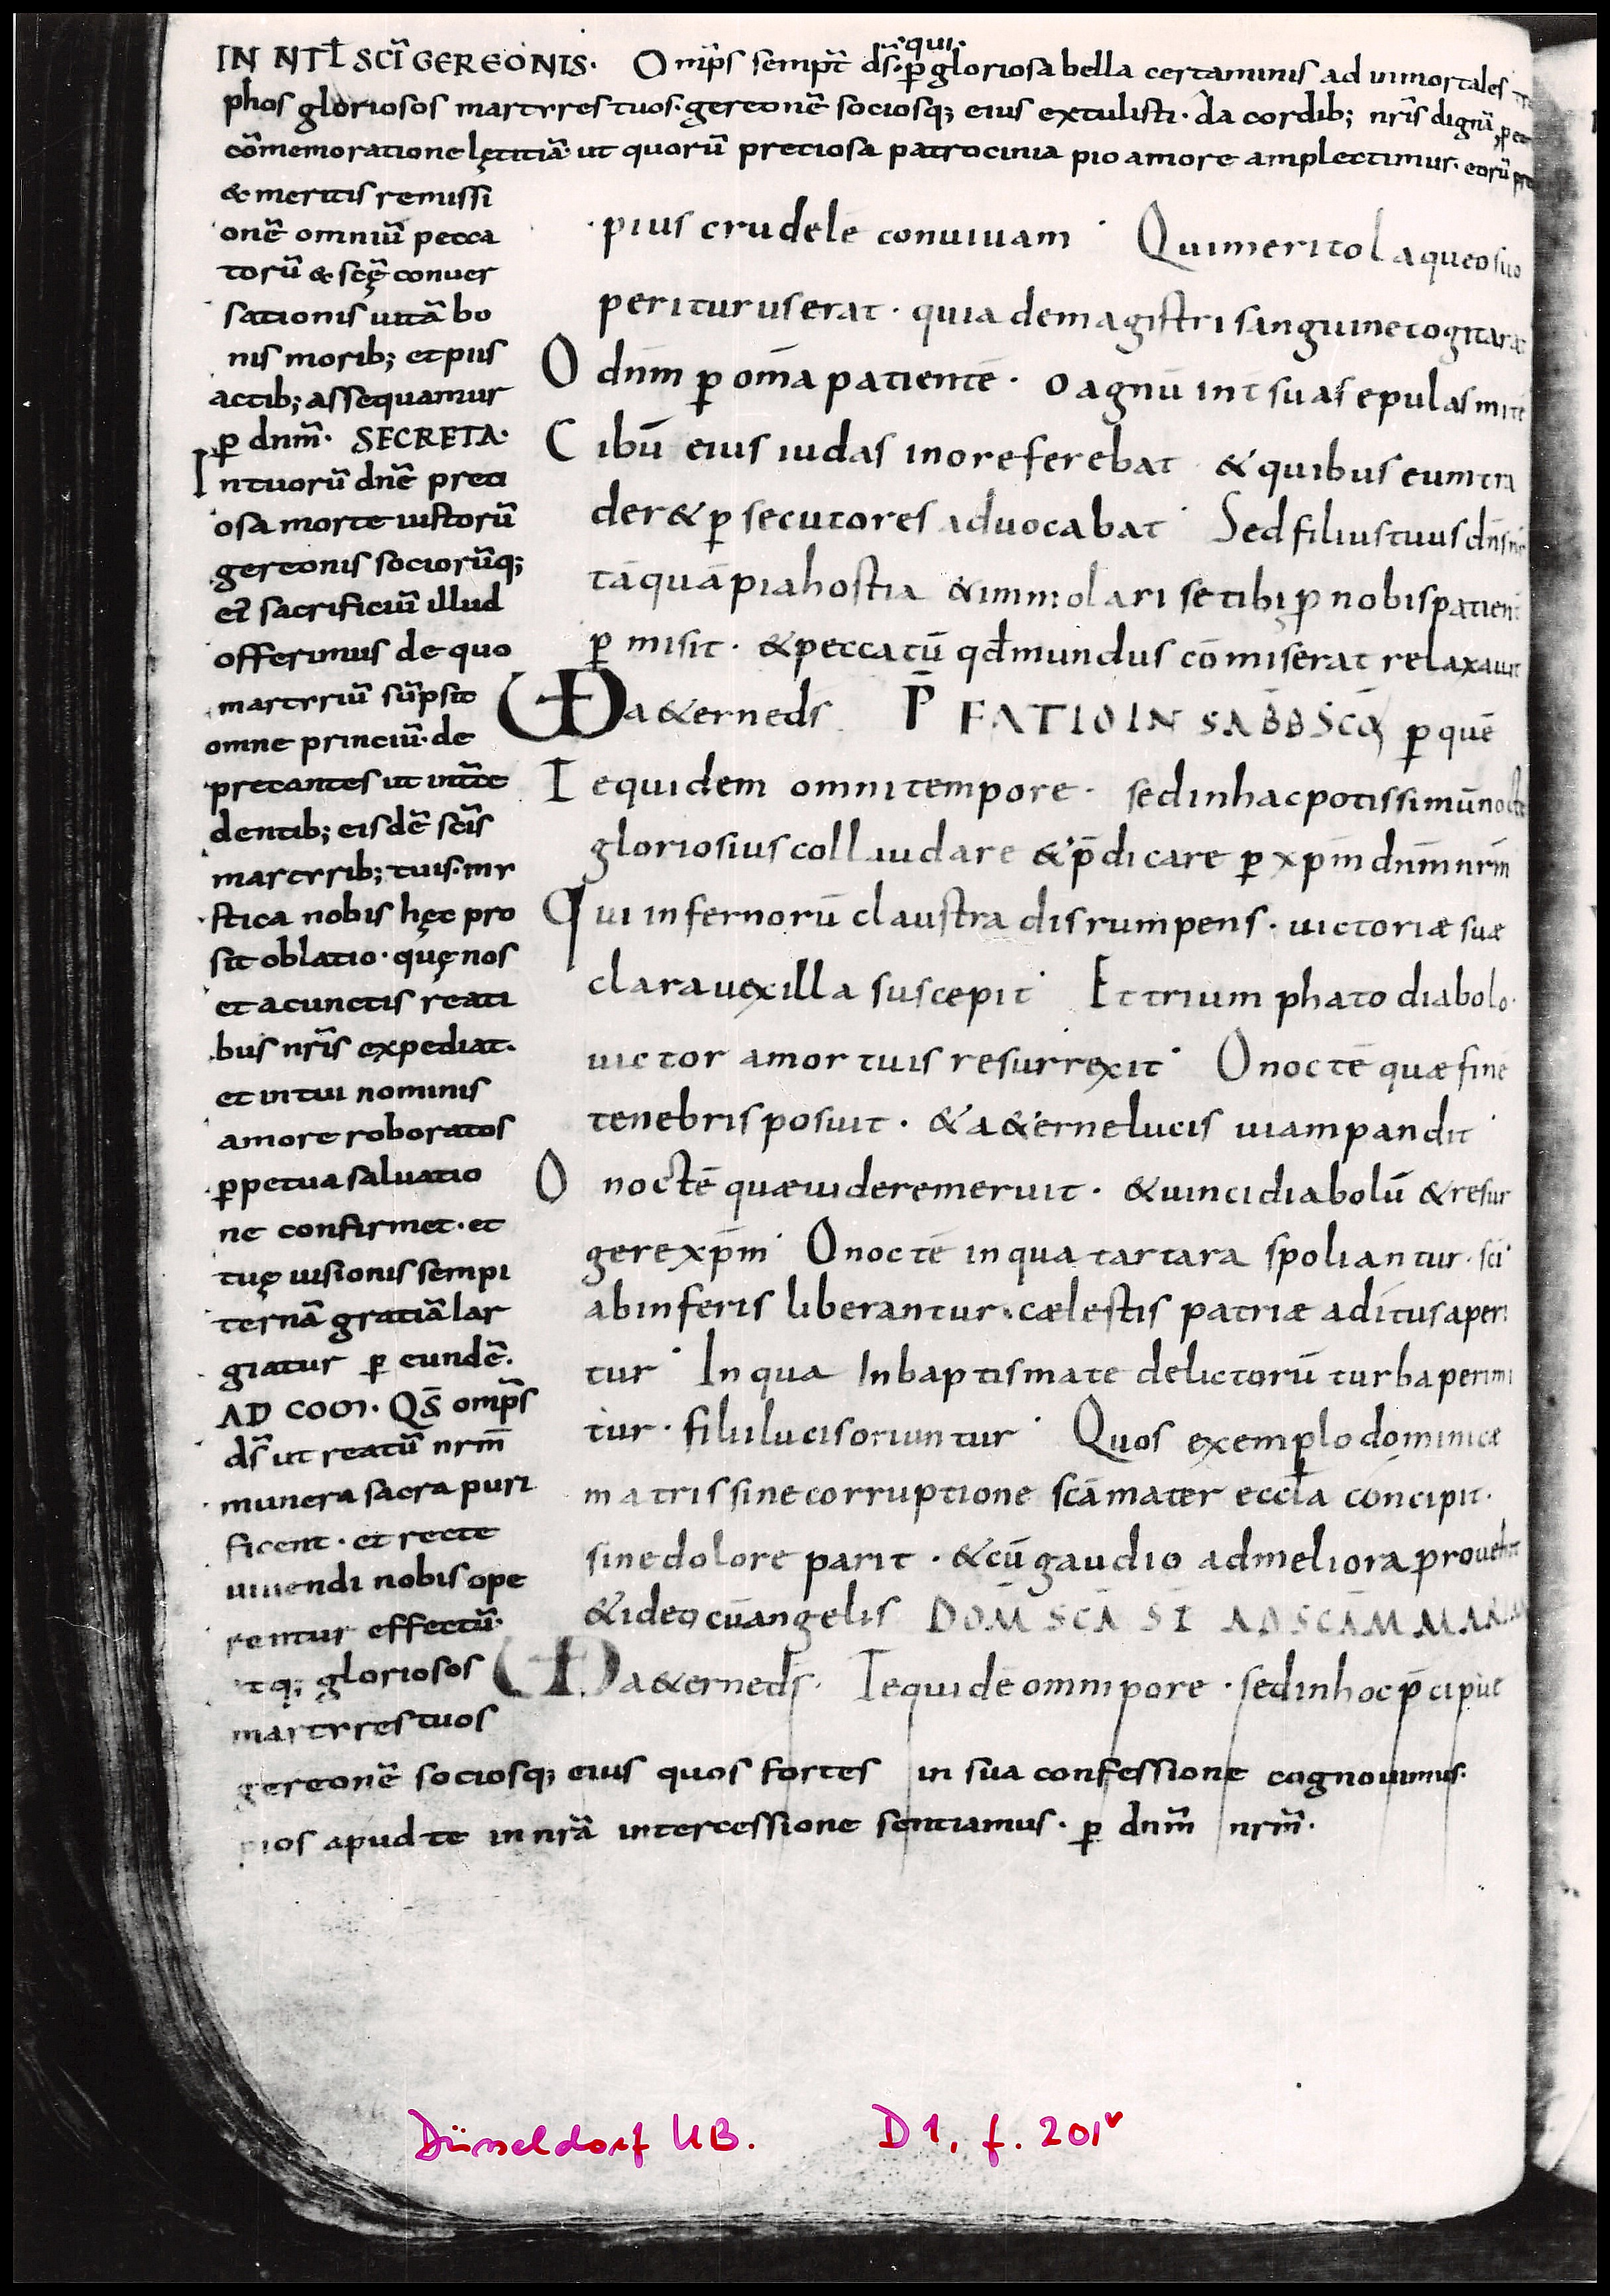 IN NT̄L SC̄I GEREONIS. Om̄ps semp̄t ds̄. ꝑ ·qui· gloriosa bella certaminis ad inmortales
phos gloriosos martyres tuos. gereonē sociosq; eius extulisti. da cordib; nr̄is dignā
cōmemoratione lętitiā. ut quorū preciosa patrocinia pio amore amplectimur. eorū
& meritis remissi
onē omniū pecca
torū & scę̄ conuer
sationis uitā bo
nis morib; et piis
actib; assequamur
ꝑ dnm̄. SECRETA.
Intuorū dnē preti
osa morte iustorū
gereonis sociorūq;
ei᷒ sacrificiū illud
offerimus de quo
martyriū sūpsit
omne principiū. de
precantes ut int̄ce
dentib; eisdē sc̄is
martyrib; tuis. my
stica nobis hęc pro
sit oblatio. quę nos
et a cunctis reati
bus nr̄is expediat.
et in tui nominis
amore roboratos
ꝑpetua saluatio
ne confirmet. et
tuę uisionis sempi
ternā gratiā lar
giatur ꝑ eundē.
AD COM. QS̄ om̄ps
ds̄ ut reatū nrm̄
munera sacra puri
ficent. et recte
uiuendi nobis ope
rentur effectū.
utq; gloriosos
martyres tuos
gereonē sociosq; eius quos fortes in sua confessione cognouimus.
pios apud te in nr̄a intercessione sentiamus. ꝑ dnm̄ nrm̄.
·pius crudelē conuiuam· Quimeritolaqueosuo
periturus erat. quia demagistrisanguinecogitarat
O dn̄m ꝑ om̄a patientē. o agnū int̄ suas epulas mitē
Cibū eius iudas inoreferebat & quibus eumtra
der& ꝑsecutores aduocabat· Sedfiliustuus dn̄s
tāquāpiahostia & immolari se tibi ꝓ nobispatient
ꝑmisit. & peccatū qd̄mundus cōmiserat relaxauit
VD a&erneds̄ P̄FATIO IN SABB SC̄O ꝑ quē
Tequidem omnitempore. sedinhacpotissimūnocte
gloriosius collaudare & p̄dicare ꝑ xp̄m dn̄m nr̄m
Qui infernorū claustra disrumpens. uictoriæ suæ
clarauexilla suscepit· Et triumphato diabolo.
uictor amortuis resurrexit· O noctē quæ finē
tenebris posuit. & a&ernelucis uiampandit·
O noctē quæ uideremeruit. & uincidiabolū & resur
gere xp̄m· O noctē in qua tartara spoliantur. sc̄i
abinferis liberantur. cælestis patriæ aditusaperi
tur· In qua Inbaptismate delictorū turbaperimi
tur. filiilucisoriuntur· Quos exemplo dominicæ
matris sinecorruptione sc̄amater eccl̄a concipit.
sinedolore parit. & cū gaudio admeliora prouehit
& ideo cūangelis DOM̄ SC̄A ST̄ AD SC̄AM MARIAM
VD a&erneds̄. Tequidē omnipore. sedinhoc p̄cipuē
Düsseldorf UB. D1, f. 201v